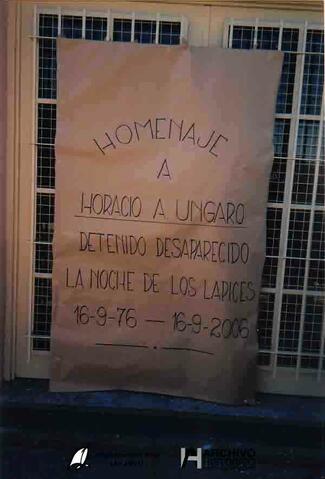 HOMENAJE
A
HORACIO A UNGARO
DETENIDO DESAPARECIDO
LA NOCHE DE LOS LAPICES
16-9-76 — 16-9-2006
ARCHIVO
HISTÓRICO